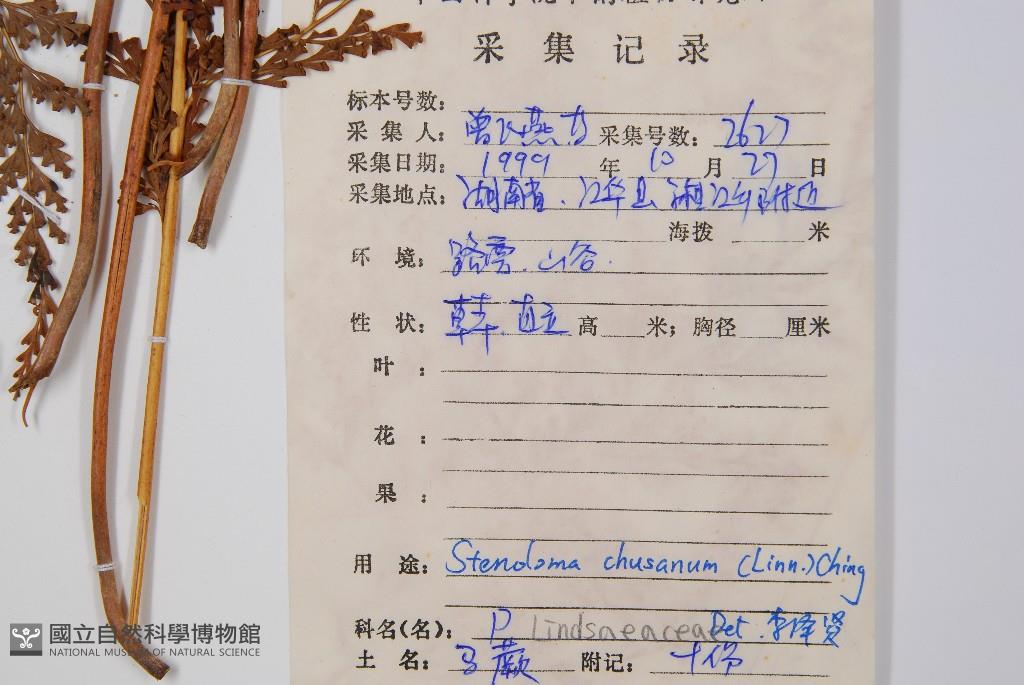 采集记录
标本号数：
采集人： 曾飞燕 采集号数： 2627
采集日期： 1999 年 10 月 27 日
采集地点： 湖南省、江华县 湘江乡附近
海拨 米
环境： 路旁、山谷.
性状： 草本、直立 高 米；胸径 厘米
叶：
花：
果：
用途： Stenoloma chusanum (Linn.) Ching
科名(名)： P Lindsaeaceae Det. 李泽贤
土名： 乌蕨 附记： 十份
國立自然科學博物館
NATIONAL MUSEUM OF NATURAL SCIENCE